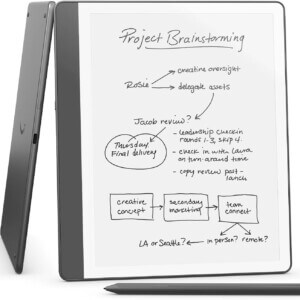 Project Brainstorming
Rosie
creative oversight
delegate assets
Jacob review?
Thursday
Final delivery
- leadership check in
rounds 1-3, skip 4
- check in with Laura
on turn around time
- copy review post-
launch
creative
concept
secondary
marketing
team
connect
LA or Seattle?
in person?
remote?